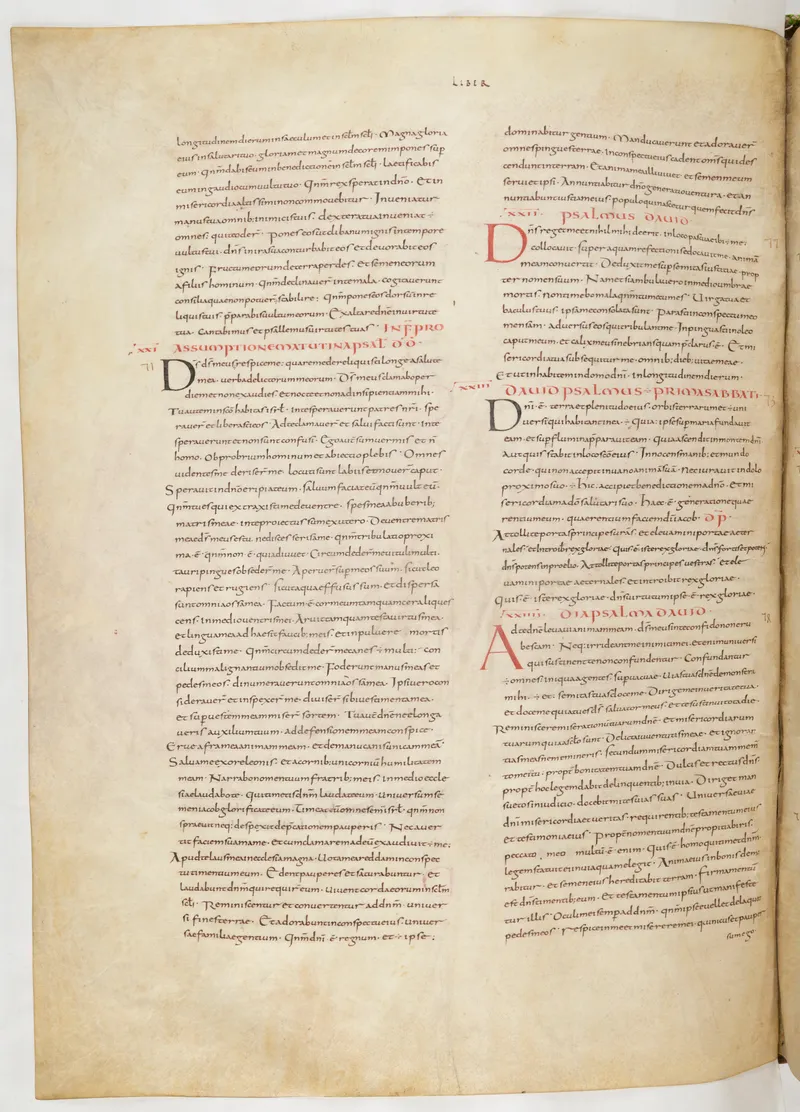 LIBER
longitudinem dierum in saeculum et in sclm scli · Magna gloria
eius in salutari tuo · gloriam et magnum decorem impones sup
eum · Qnm dabis eum in benedictionē in sclm scli · Laetificabis
eum in gaudio cum uultu tuo · Qnm rex sperat in dnō · Et in
misericordia altissimi non commouebitur · Inueniatur
manus tua omnib; inimicis tuis · dextera tua inueniat ÷
omnes · qui te oder · Pones eos ut clibanum ignis in tempore
uultus tui · dns in ira sua conturbabit eos et deuorabit eos
ignis · Fructum eorum de terra perdes · et semen eorum
a filiis hominum · Qnm declinauer in te mala · cogitauerunt
consilia quae non potuer stabilire : Qnm pones eos dorsum in re
liquis tuis pparabis uultum eorum · Exaltare dnē in uirtute
tua · Cantabimus et psallemus uirtutes tuas · IN F PRO
xxi ASSUMPTIONE MATUTINA PSAL DD ·
Ds ds meus respice me : quare me dereliquisti longe a salute
mea · uerba delictorum meorum · Ds meus clamabo per
diem et non exaudies et nocte et non ad insipientiam mihi ·
Tu autem in scō habitas isrl · In te sperauerunt patres nri · spe
rauer et liberasti eos · Ad te clamauer et salui facti sunt · In te
sperauerunt et non sunt confusi · Ego aut sum uermis et n
homo · Obprobrium hominum et abiectio plebis · Omnes
uidentes me deriser me · locuti sunt labiis et mouer caput ·
Sperauit in dnō eripiat eum · saluum faciat eū qnm uult eū ·
Qnm tu es qui extraxisti me de uentre · spes mea ab uberib;
matris meae · in te proiectus sum ex utero · De uentre matris
meae ds meus es tu · ne discesseris a me · qnm tribulatio proxi
ma · ē · qnm non · ē · qui adiuuet · Circumdeder me uituli multi ·
tauri pingues obseder me · Aperuer sup me os suum · sicut leo
rapiens et rugiens · sicut aqua effusus sum · et dispersa
sunt omnia ossa mea · Factum · ē · cor meum tamquam cera lique
cens in medio uentris mei · Aruit tamquam testa uirtus mea ·
et lingua mea adhaesit faucib; meis · et in puluerē mortis
deduxisti me · Qnm circumdeder me canes ÷ multi : con
cilium malignantium obsedit me · Foder manus meas et
pedes meos · dinumerauer omnia ossa mea · Ipsi uero con
siderauer et inspexer me · diuiser sibi uestimenta mea ·
et sup uestem meam miser sortem · Tu autē dnē ne elonga
ueris auxilium tuum · ad defensionem meam conspice ·
Erue a framea animam meam · et de manu canis unicam meā
Salua me ex ore leonis · et a cornib; unicornium humilitatem
meam · Narrabo nomen tuum fratrib; meis · in medio eccle
siae laudabo te · Qui timetis dnm laudate eum · Uniuersum se
men iacob glorificate eum · Timeat eū omne semen isrl · qnm non
spreuit neq; despexit depcationem pauperis · Nec auer
tit faciem suam a me · et cum clamarem ad eū exaudiuit ÷ me :
Apud te laus mea in ecclesia magna · Uota mea reddam in conspec
tu timentium eum · Edent pauperes et saturabuntur · et
laudabunt dnm qui requir eum · Uiuent corda eorum in sclm
scli · Reminiscentur et conuertentur ad dnm · uniuer
si fines terrae · Et adorabunt in conspectu eius · uniuer
sae familiae gentium · Qnm dni · ē · regnum · et ÷ ipse :
dominabitur gentium · Manducauerunt et adorauer
omnes pingues terrae · in conspectu eius cadent oms qui des
cendunt in terram · Et anima mea illi uiuet · et semen meum
seruiet ipsi · Annuntiabitur dnō generatio uentura · et an
nuntiabunt iustitiam eius populo qui nascetur quem fecit dns
xxii · PSALMUS DAUID
Dns reget me et nihil mihi deerit · in loco pascuae ibi ÷ me :
collocauit · super aquam refectionis educauit me · animā
meam conuertit · Deduxit me sup semitas iustitiae · prop
ter nomen suum · Nam et si ambulauero in medio umbrae
mortis · non timebo mala qnm tu mecum es · Uirga tua et
baculus tuus · ipsa me consolata sunt · Parasti in conspectu meo
mensam · aduersus eos qui tribulant me · Inpinguasti in oleo
caput meum · et calix meus inebrians quam pclarus · ē · Et mi
sericordia tua subsequitur me · omnib; dieb; uitae meae ·
Et ut inhabitem in domo dni · in longitudinem dierum ·
xxiii DAUID PSALMUS ÷ PRIMA SABBATI
Dni · ē · terra et plenitudo eius · orbis terrarum et ÷ uni
uersi qui habitant in ea · ÷ Quia : ipse sup maria fundauit
eam · et sup flumina pparauit eam · Quis ascendit in montem dni
Aut quis stabit in loco scō eius · Innocens manib; et mundo
corde · qui non accepit in uano animā suā · Nec iurauit in dolo
proximo suo ÷ Hic accipiet benedictionem a dnō · et mi
sericordiam a dō salutari suo · Haec · ē · generatio quae
rentium eum · quaerentium faciem dī iacob · DP ·
Attollite portas principes uras · et eleuamini portae aeter
nales · et introibit rex gloriae · Quis · ē · iste rex gloriae · dns fortis et potens
dns potens in proelio · Attollite portas principes uestras · et ele
uamini portae aeternales et introibit rex gloriae ·
Quis · ē · iste rex gloriae · dns uirtutum ipse · ē · rex gloriae ·
xxiiii · DIAPSALMA DAUID ·
Ad te dnē leuaui animam meam · ds meus in te confido non eru
bescam · Neq; irrideant me inimici mei · etenim uniuersi
qui sustinent te non confundentur · Confundantur
÷ omnes : iniqua agentes · superuacue · Uias tuas dnē demonstra
mihi · ÷ et : semitas tuas doce me · Dirige me in ueritate tua ·
et doce me quia tu es ds saluator meus · et te sustinui tota die ·
Reminiscere miserationum tuarum dnē · et misericordiarum
tuarum quia a sclō sunt · Delicta iuuentutis meae · et ignoran
tias meas ne memineris · secundum misericordiam tuam mem
propt hoc legem dabit delinquentib; in uia · Diriget man
suetos in iudicio · docebit mites uias suas · Uniuersae uiae
dni misericordia et ueritas · requirentib; testamentum eius
et testimonia eius · Propt nomen tuum dnē propitiaberis
peccato meo multū · ē · enim · Quis · ē · homo qui timet dnm ·
legem statuit ei in uia quam elegit · Anima eius in bonis demo
rabitur · et semen eius hereditabit terram · Firmamentū
est dns timentib; eum · Et testamentum ipsius ut manifeste
tur illis · Oculi mei semp ad dnm · qnm ipse euellet de laqueo
pedes meos · Respice in me et miserere mei · quia unicus et pauper
sum ego ·